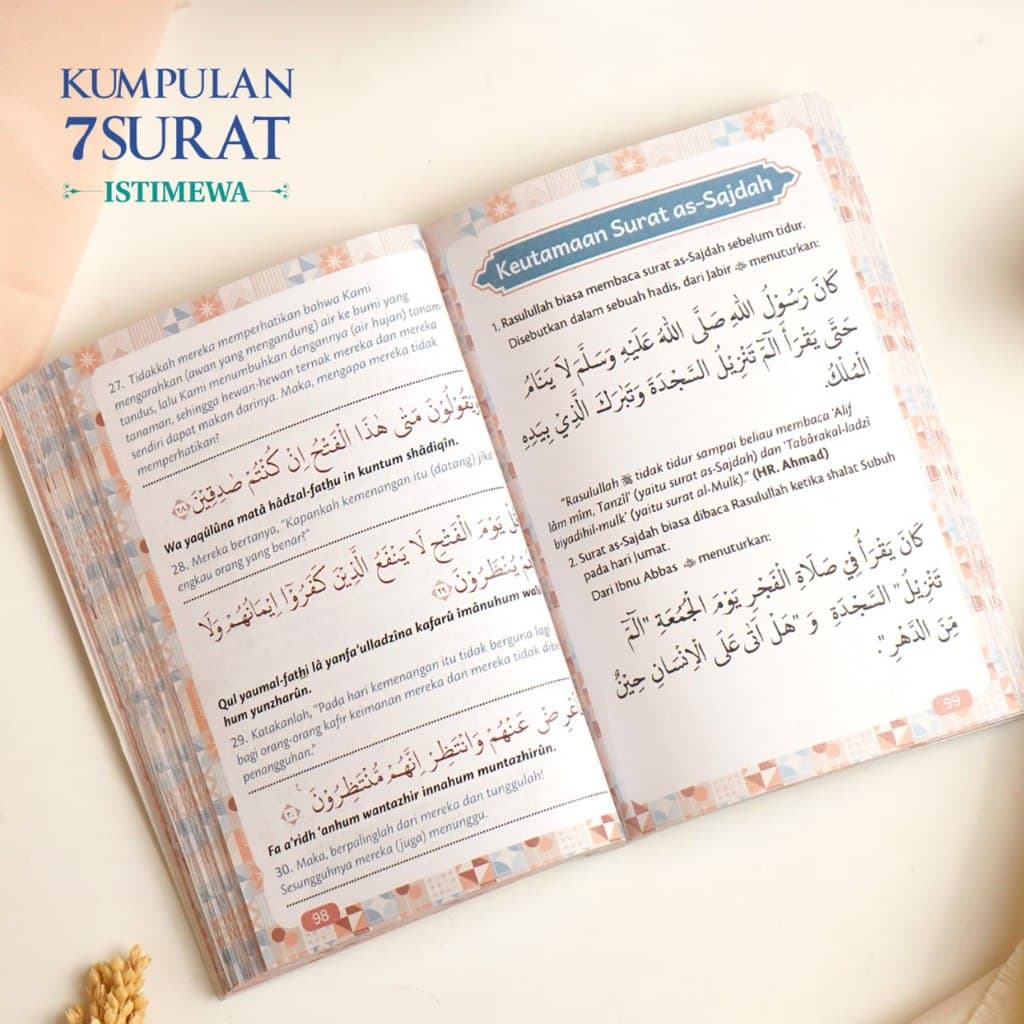 KUMPULAN
7SURAT
ISTIMEWA
27. Tidakkah mereka memperhatikan bahwa Kami
mengarahkan (awan yang mengandung) air ke bumi yang
tandus, lalu Kami menumbuhkan dengannya (air hujan) tanam
tanaman, sehingga hewan-hewan ternak mereka dan mereka
sendiri dapat makan darinya. Maka, mengapa mereka tidak
memperhatikan?
وَيَقُوْلُوْنَ مَتٰى هٰذَا الْفَتْحُ اِنْ كُنْتُمْ صٰدِقِيْنَ ﴿٢٨﴾
Wa yaqûlûna matâ hâdzal-fatḥu in kuntum shâdiqîn.
28. Mereka bertanya, "Kapankah kemenangan itu (datang) jika
engkau orang yang benar?"
قُلْ يَوْمَ الْفَتْحِ لَا يَنْفَعُ الَّذِيْنَ كَفَرُوْٓا اِيْمَانُهُمْ وَلَا
هُمْ يُنْظَرُوْنَ ﴿٢٩﴾
Qul yaumal-fatḥi lâ yanfa'ulladzîna kafarû îmânuhum walâ
hum yunzharûn.
29. Katakanlah, "Pada hari kemenangan itu tidak berguna lagi
bagi orang-orang kafir keimanan mereka dan mereka tidak dibe
penangguhan."
فَاَعْرِضْ عَنْهُمْ وَانْتَظِرْ اِنَّهُمْ مُّنْتَظِرُوْنَ ﴿٣٠﴾
Fa a'ridh 'anhum wantazhir innahum muntazhirûn.
30. Maka, berpalinglah dari mereka dan tunggulah!
Sesungguhnya mereka (juga) menunggu.
98
Keutamaan Surat as-Sajdah
1. Rasulullah biasa membaca surat as-Sajdah sebelum tidur.
Disebutkan dalam sebuah hadis, dari Jabir menuturkan:
كَانَ رَسُوْلُ اللهِ صَلَّى اللهُ عَلَيْهِ وَسَلَّمَ لَا يَنَامُ
حَتَّى يَقْرَأَ الٓمٓ تَنْزِيْلُ السَّجْدَةَ وَتَبٰرَكَ الَّذِيْ بِيَدِهِ
الْمُلْكُ
"Rasulullah ﷺ tidak tidur sampai beliau membaca 'Alif
lâm mîm, Tanzîl' (yaitu surat as-Sajdah) dan 'Tabârakal-ladzî
biyadihil-mulk' (yaitu surat al-Mulk)." (HR. Ahmad)
2. Surat as-Sajdah biasa dibaca Rasulullah ketika shalat Subuh
pada hari Jumat.
Dari Ibnu Abbas menuturkan:
كَانَ يَقْرَأُ فِيْ صَلَاةِ الْفَجْرِ يَوْمَ الْجُمُعَةِ "الٓمٓ
تَنْزِيْلُ" السَّجْدَةِ وَ "هَلْ اَتٰى عَلَى الْاِنْسَانِ حِيْنٌ
مِنَ الدَّهْرِ".
99